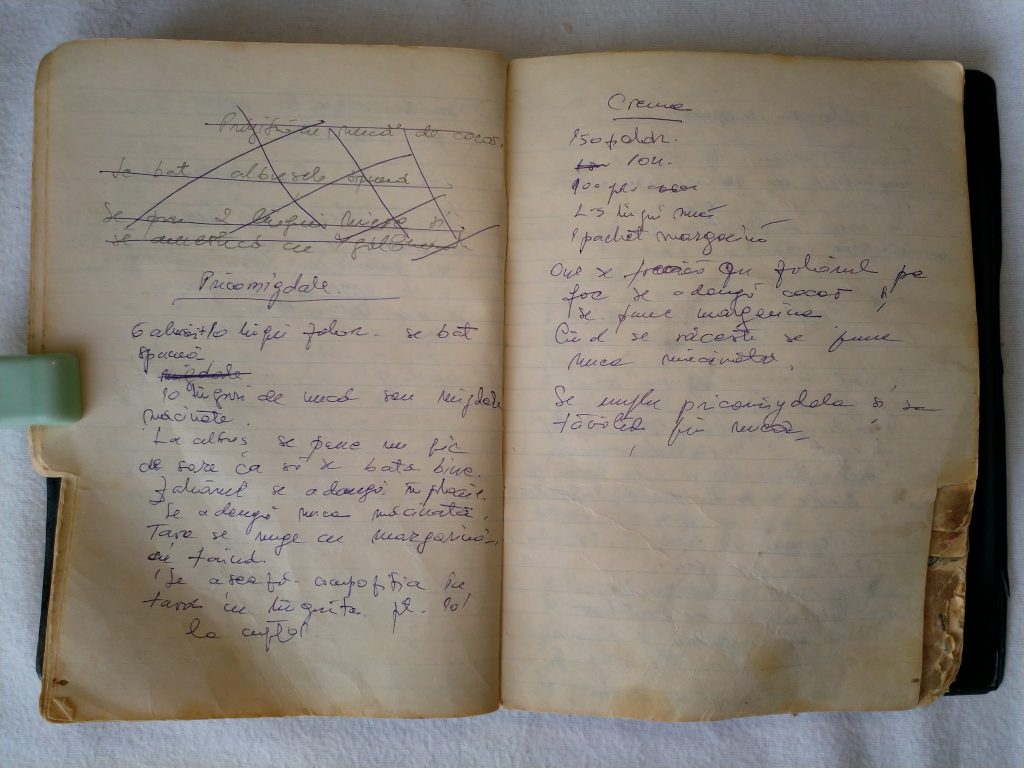 Prăjitură nucă de cocos.
Se bat albușele spumă.
Se pun 2 linguri miere și
se amestecă cu
Pricomigdale.
6 albuș+10 linguri zahăr. se bat
spumă
migdale
10 linguri de nucă sau migdale
măcinate.
La albuș se pune un pic
de sare ca să se bată bine.
Zahărul se adaugă în ploaie.
Se adaugă nuca măcinată
Tava se unge cu margarină
cu făină.
Se așează compoziția în
tavă cu lingurița pt. 10'
la
Crema
150 zahăr.
10u.
100 gr. cacao
2-3 linguri nucă
1 pachet margarină
Oue se freacă cu zahărul pe
foc se adaugă cacao și
se pune margarina
Cînd se răcește se pune
nuca măcinată.
Se umplu pricomigdale și se
tăvălesc prin nuca